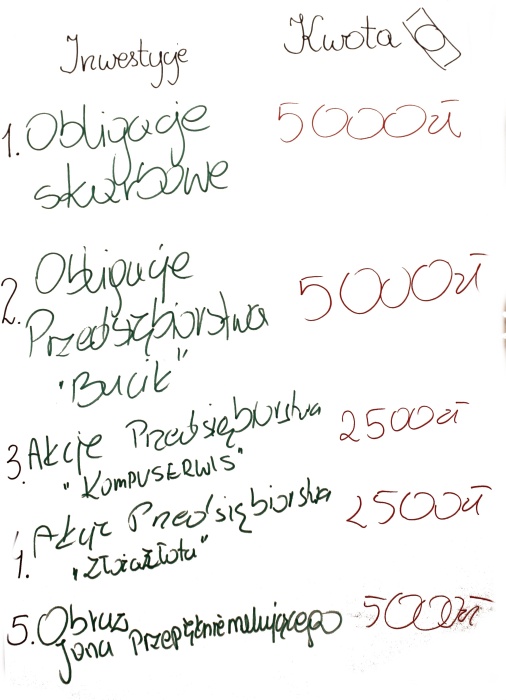 Inwestycje Kwota
1. Obligacje 5000zł
skarbowe
2. Obligacje 5000zł
Przedsiębiorstwa
"Bucik"
3. Akcje Przedsiębiorstwa 2500zł
"KOMPUSERWIS"
4. Akcje Przedsiębiorstwa 2500zł
5. Obraz 5000zł
Jana Przepiękniemalującego